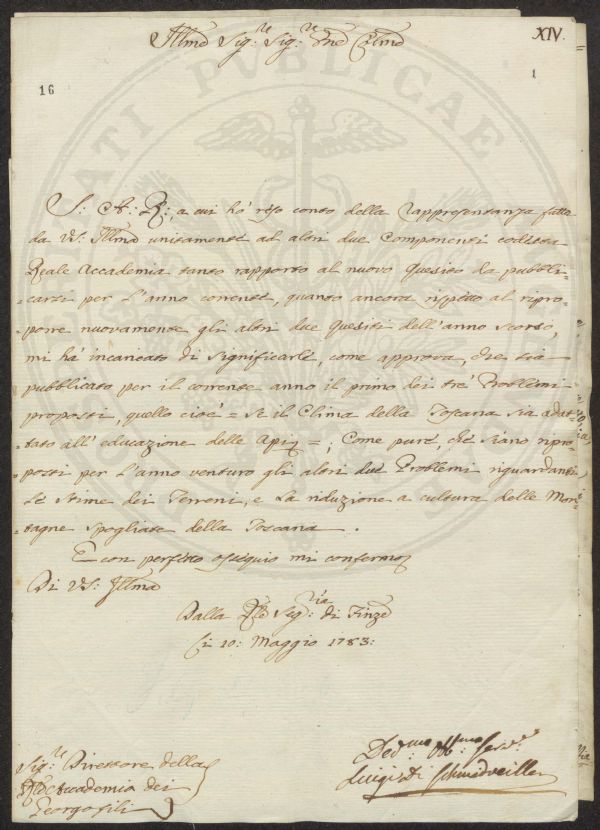 XIV.
Illmo Sig:re Sig:re Pne Colmo
16
1
S: A: R: a cui hò reso conto della Rappresentanza fatta
da VS: Illma unitamente ad altri due Componenti codesta
Reale Accademia tanto rapporto al nuovo Quesito da pubbli=
=carsi per l'anno corrente, quanto ancora rispetto al ripro=
=porre nuovamente gli altri due Quesiti dell'anno scorso,
mi hà incaricato di significarle, come approva, che sia
pubblicato per il corrente anno il primo dei trè Problemi
proposti, quello cioè = Se il Clima della Toscana sia adat=
=tato all'educazione delle Api =; Come pure, che siano ripro=
=posti per l'anno venturo gli altri due Problemi riguardanti
Le Stime dei Terreni, e La riduzione a cultura delle Mon=
=tagne spogliate della Toscana.
E con perfetto ossequio mi confermo
Di VS: Illma
Dalla Rle Seg:ria di Finze
Li 10: Maggio 1783:
Sig:re Direttore della
Rle Accademia dei
Georgofili
Dev:mo Obb:mo Ser:re
Luigi di Schmidveiller
PUBLICAE